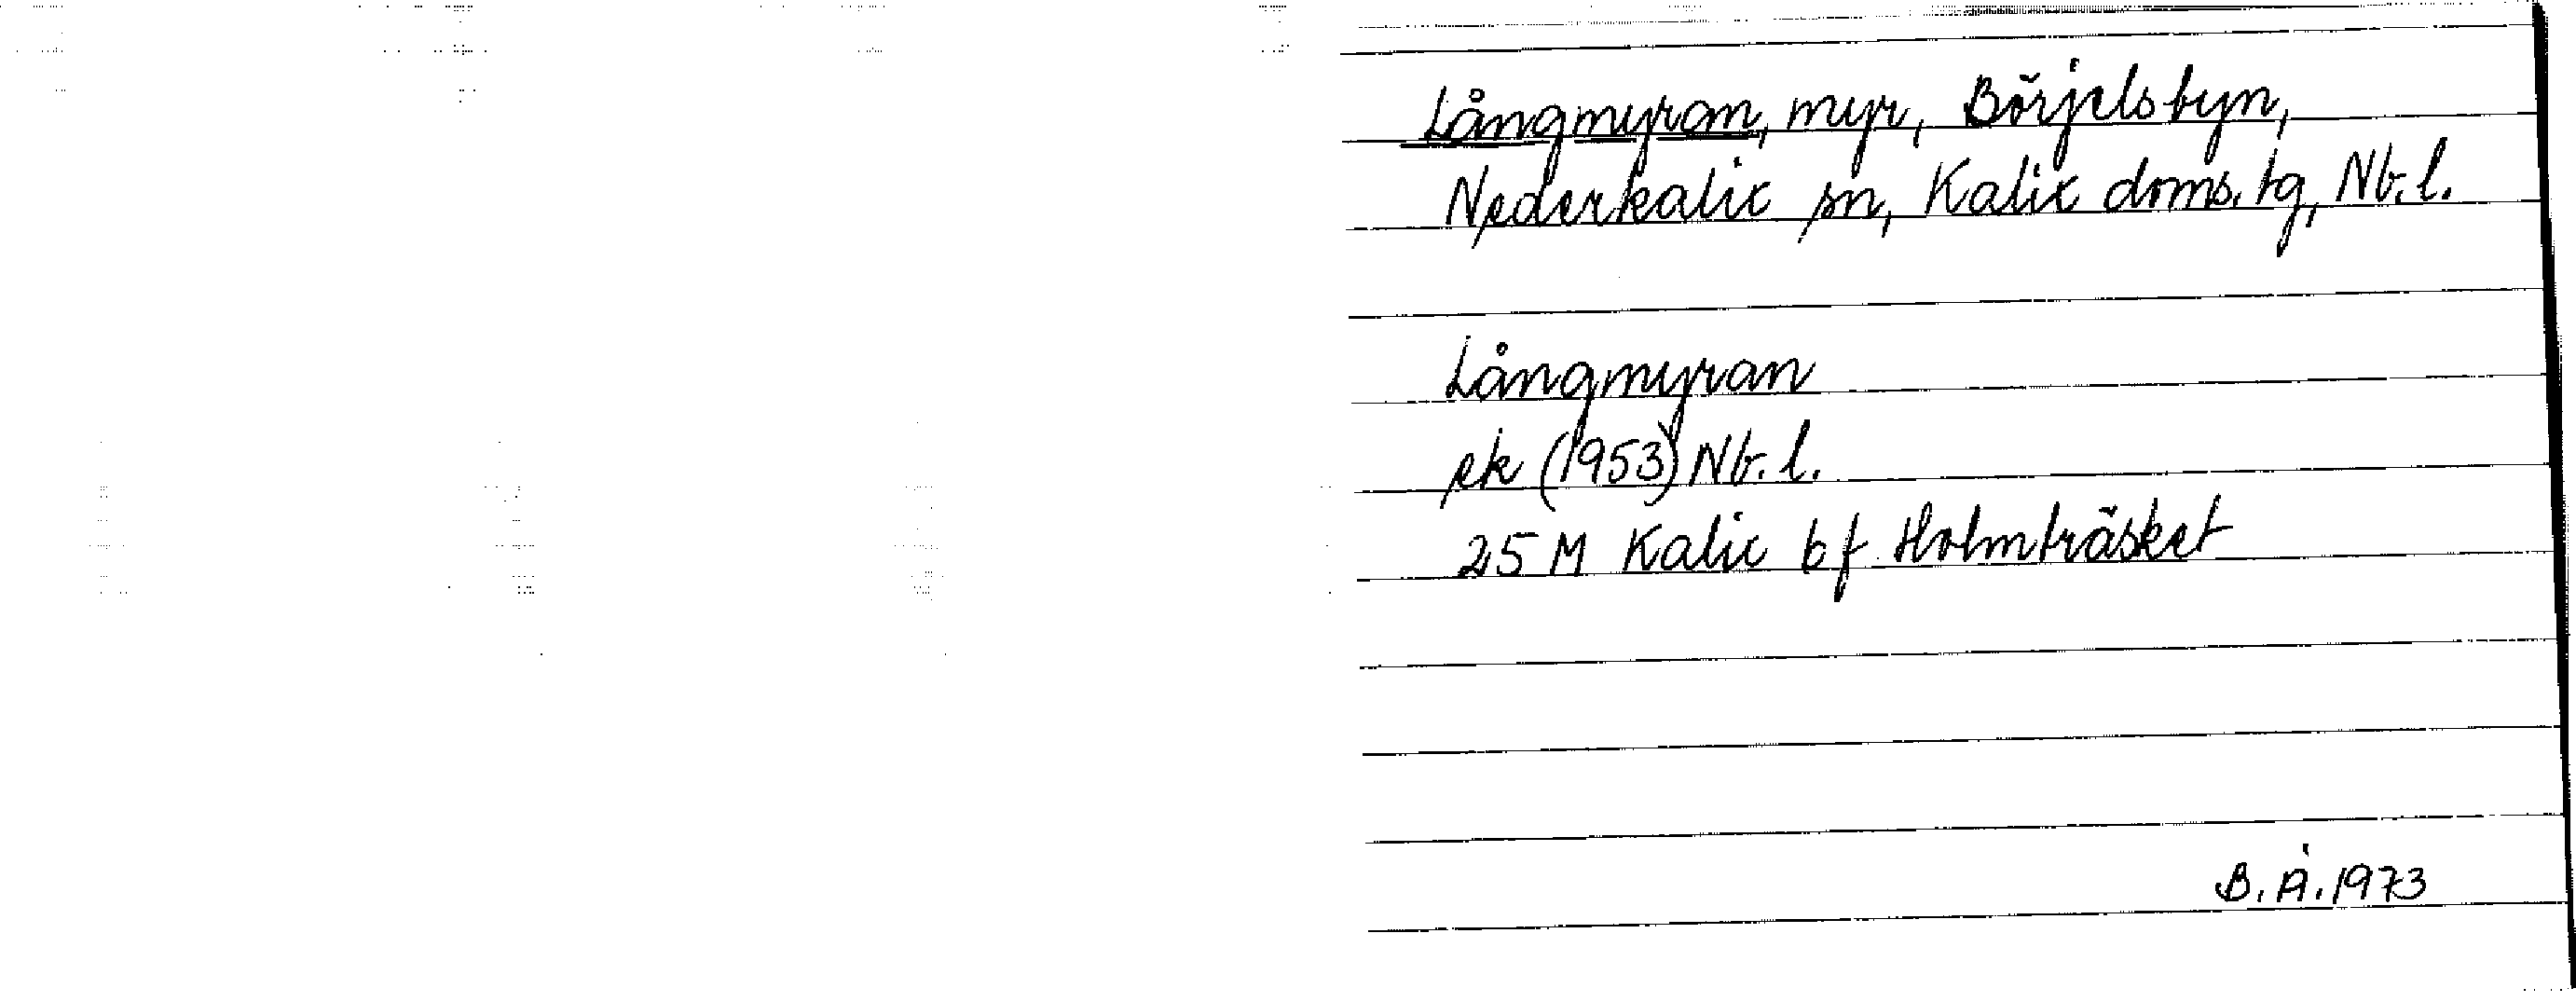 Långmyran, myr, Börjelsbyn,
Nederkalix sn, Kalix doms. tg, Nb. l.
Långmyran
ek (1953) Nb. l.
25 M Kalix bf Holmträsket
B. Å. 1973